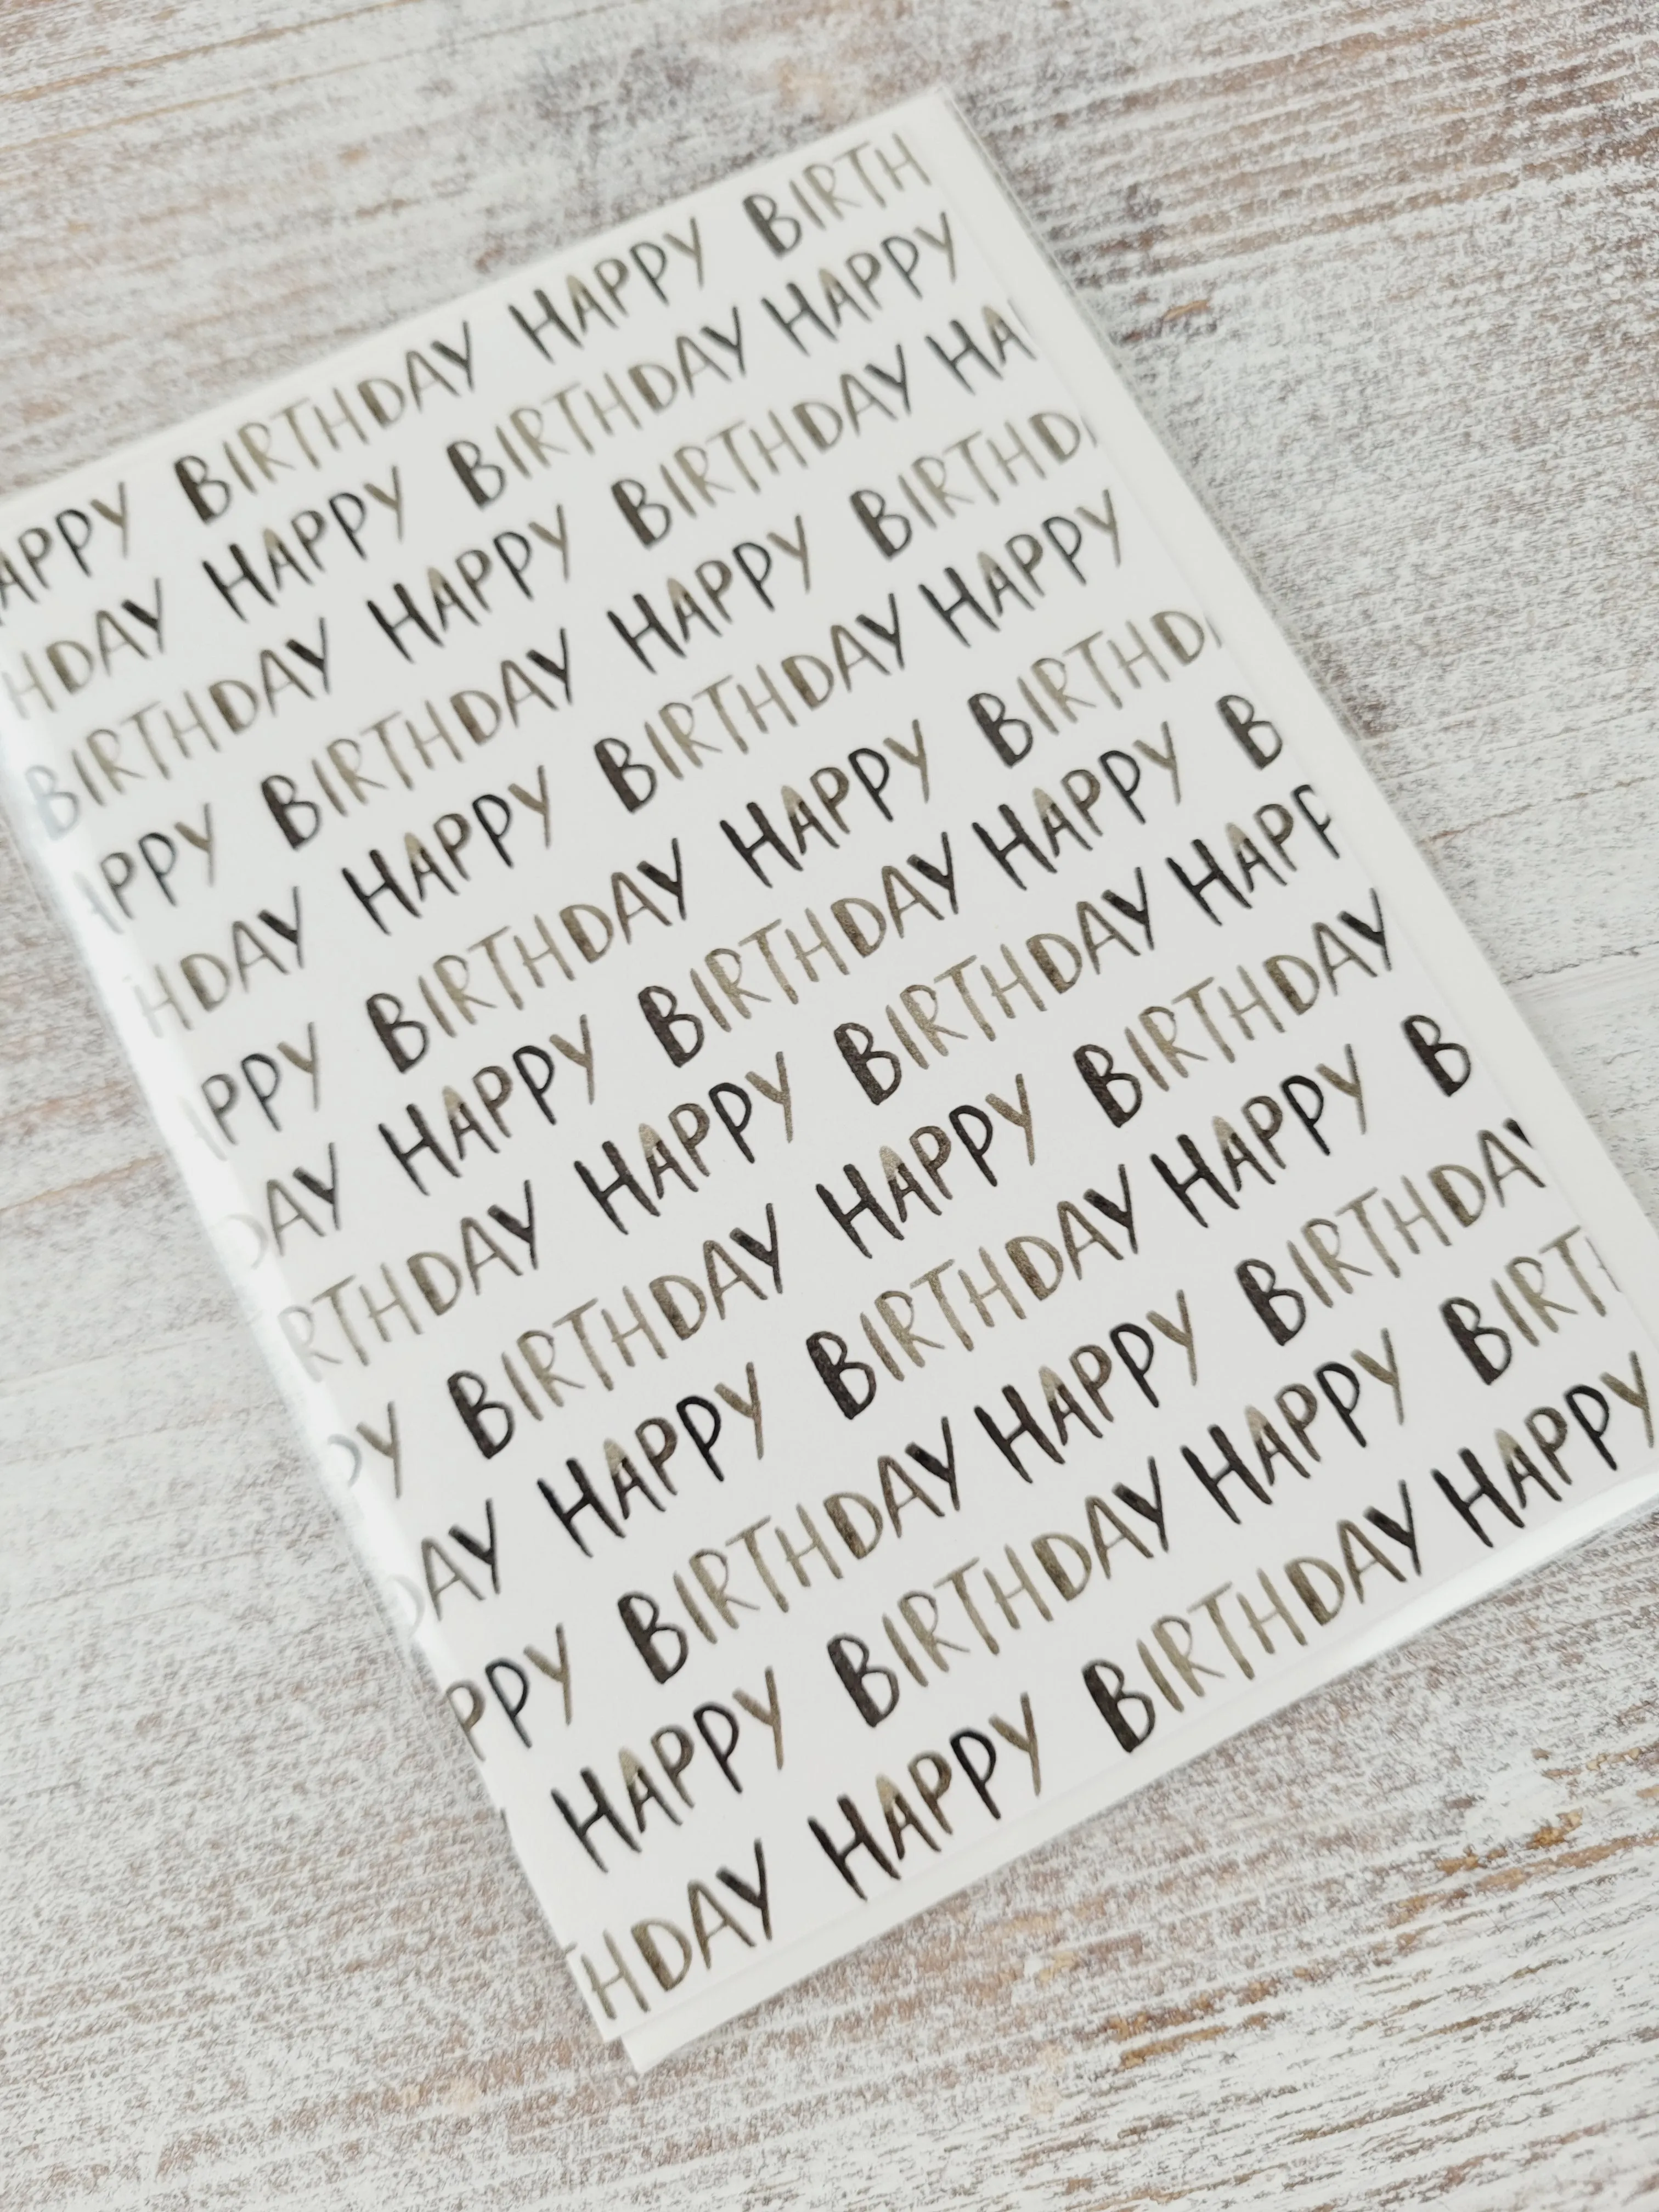 APPY BIRTHDAY HAPPY BIRTH
HDAY HAPPY BIRTHDAY HAPPY
BIRTHDAY HAPPY BIRTHDAY HA
PPY BIRTHDAY HAPPY BIRTHD
HDAY HAPPY BIRTHDAY HAPPY
PPY BIRTHDAY HAPPY BIRTHD
DAY HAPPY BIRTHDAY HAPPY B
RTHDAY HAPPY BIRTHDAY HAPP
PY BIRTHDAY HAPPY BIRTHDAY
DAY HAPPY BIRTHDAY HAPPY B
PPY BIRTHDAY HAPPY BIRTHDAY
HAPPY BIRTHDAY HAPPY BIRTH
HDAY HAPPY BIRTHDAY HAPPY